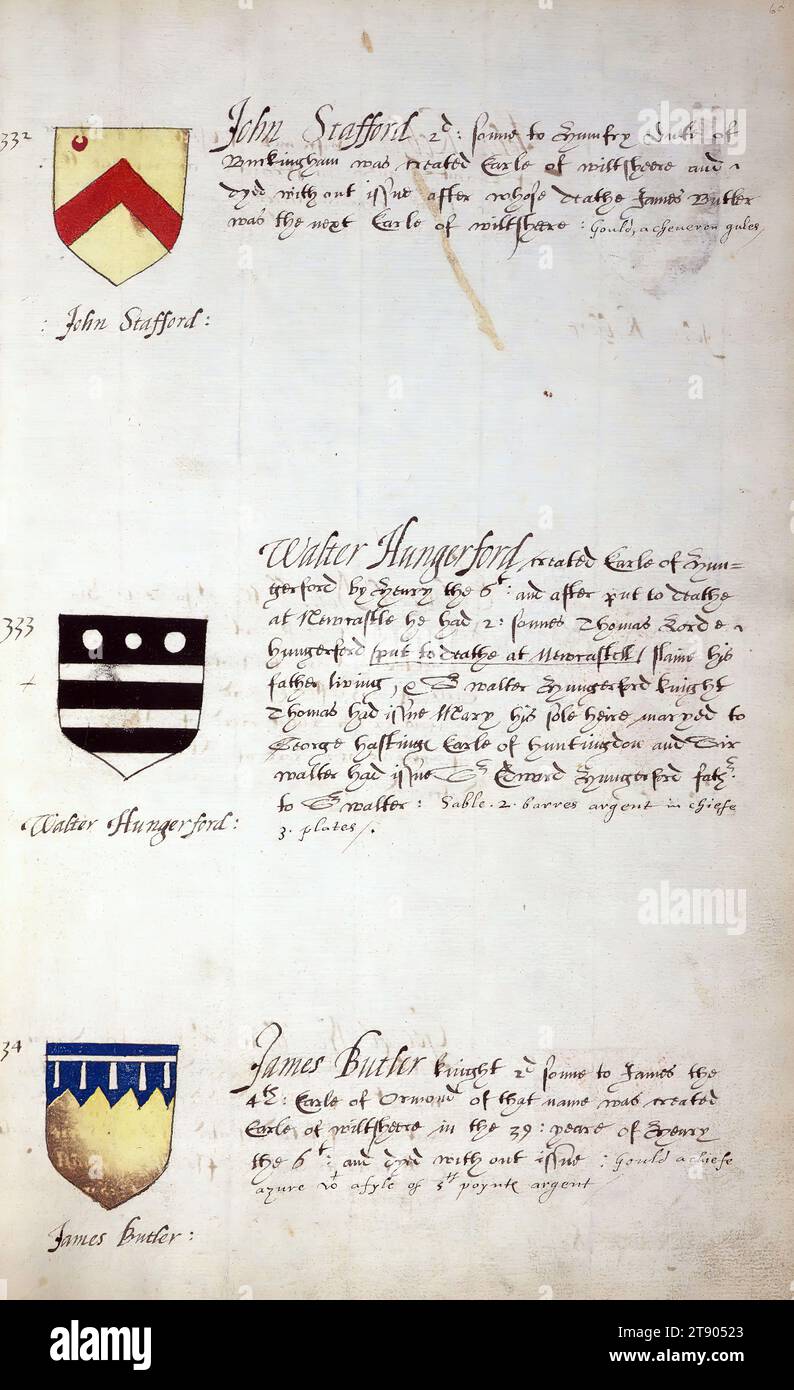 60
332
John Stafford 2d: sonne to Humfry Duke of
Buckingham was created Earle of wiltsheere and
dyed without issue after whose deathe James Butler
was the next Earle of wiltsheere : Gould, a cheveron gules,
: John Stafford :
333
Walter Hungerford created Earle of Hun=
gerford by Henry the 6t: and after put to deathe
at Newcastle he had 2: sonnes Thomas Lord
hungerford (put to deathe at Newcastell) slaine his
father living, & Sr walter Hungerford knight
Thomas had issue Mary his sole heire maryed to
George hastinges Earle of huntingdon and Sir
walter had issue Sr Edword Hungerford fathr.
to Sr walter : Sable . 2 . barres argent in chiefe
3 . plates /.
Walter Hungerford :
34
James Butler knight 2d sonne to James the
4th: Earle of Ormond of that name was created
Earle of wiltsheere in the 39: yeare of Henry
the 6t: and dyed without issue : Gould a chiefe
azure wt a fyle of 5th poyntes argent
James Butler :
alamy
alamy
alamy
Image ID: 2T90523
www.alamy.com